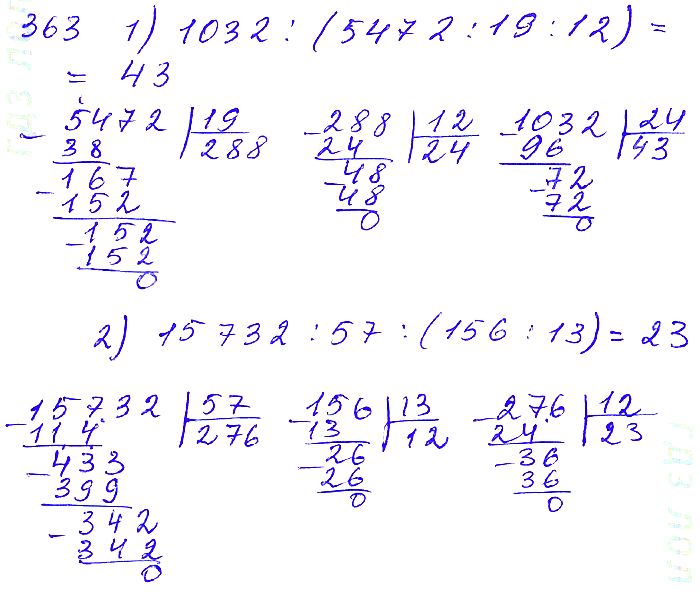 363 1) 1032 : (5472 : 19 : 12) =
= 43
- 5472 | 19 - 288 | 12 - 1032 | 24
38 288 24 24 96 43
- 167 - 48 - 72
152 48 72
- 152 0 0
152
0
2) 15732 : 57 : (156 : 13) = 23
- 15732 | 57 - 156 | 13 - 276 | 12
114 276 13 12 24 23
- 433 - 26 - 36
399 26 36
- 342 0 0
342
0